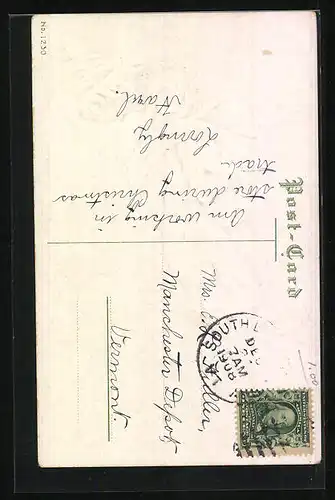 No. 1230
Post-Card
Am working in
store during Christmas
trade.
Lovingly
Hazel.
Mrs.
Manchester Depot,
Vermont.
SOUTH
DE
7 AM
1908
1.00